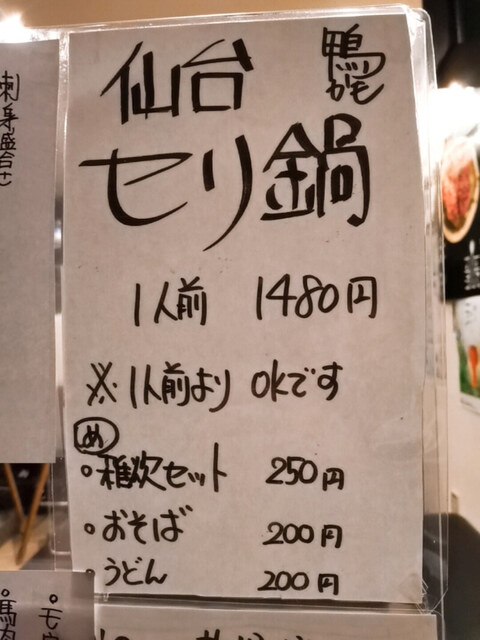 鴨
かも
仙台
セリ鍋
1人前 1480円
※1人前より OKです
め
・雑炊セット 250円
・おそば 200円
・うどん 200円
刺身盛合せ